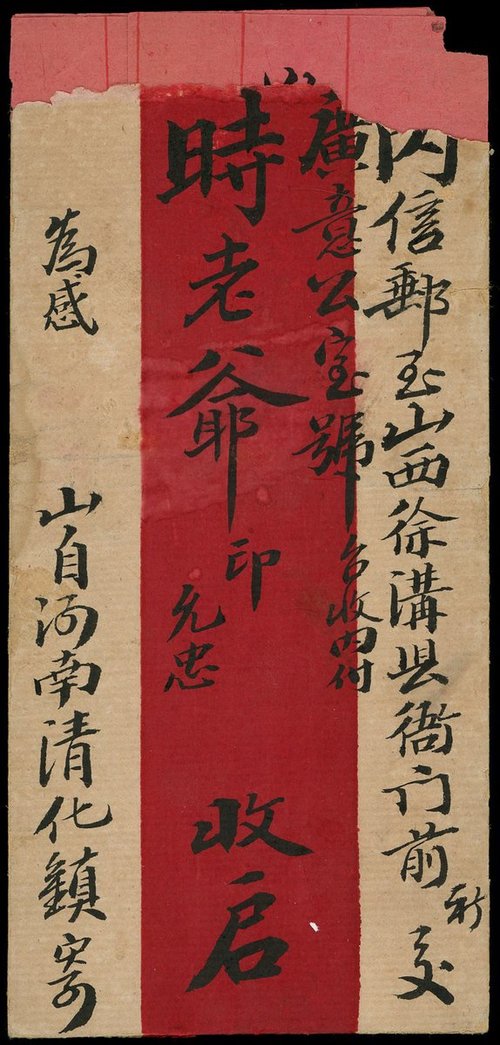 內信郵至山西徐溝县衙门前新交
廣意公寶號台收內付
時老爺印允忠收启
為感
山自河南清化鎮寄